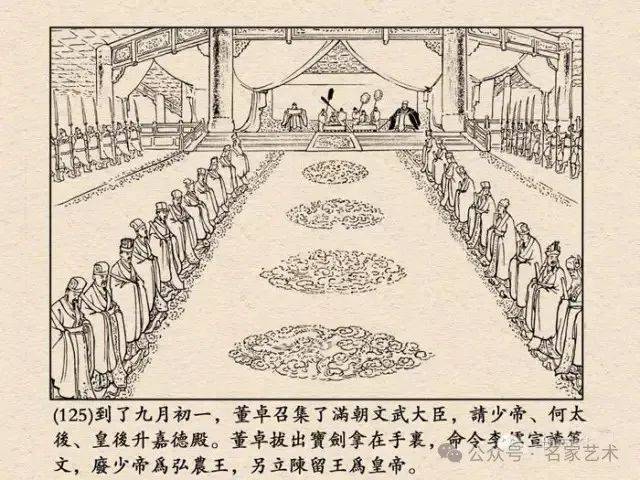 (125)到了九月初一，董卓召集了滿朝文武大臣，請少帝、何太
後、皇後升嘉德殿。董卓拔出寶劍拿在手裏，命令李
文，廢少帝爲弘農王，另立陳留王爲皇帝。
公众号·名家艺术